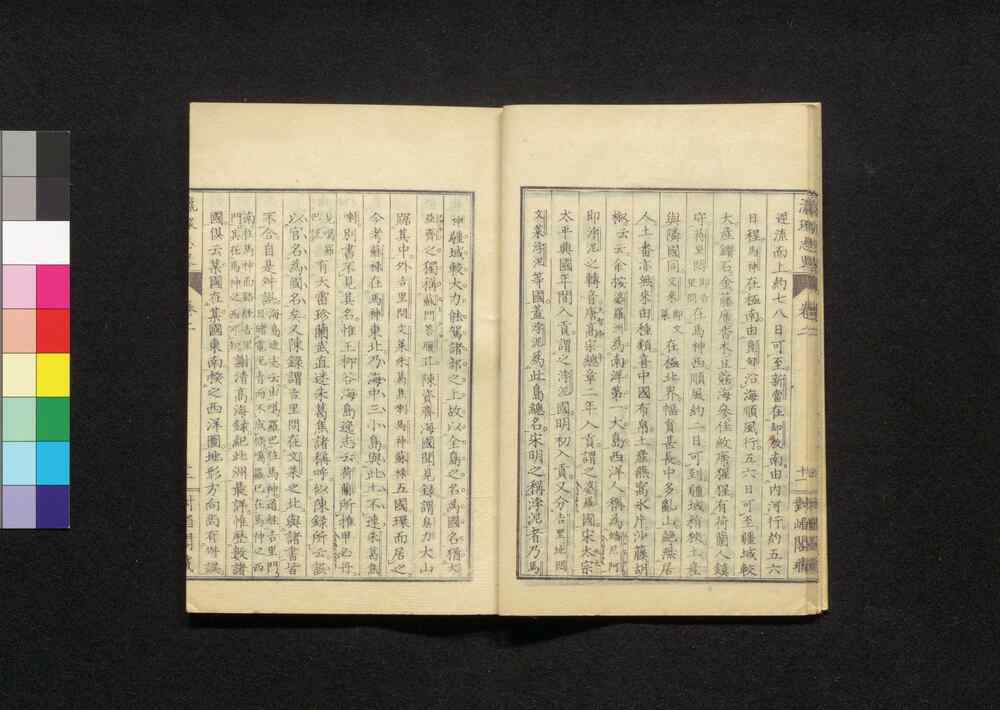 瀛環志略 卷二 十一 對嵋閣藏
逆流而上約七八日可至新當在卸敖南由內河行約五六
日程馬神在極南由崑甸沿海順風行五六日可至疆域較
大產鑽石金藤席香木豆蔻海參佳紋席猩猩有荷蘭人鎮
守蔣里悶即吉里問在馬神西順風約二日可到疆域稍狹土產
與隣國同文萊即文萊在極北界幅員甚長中多亂山絕無居
人土番亦無來由種類喜中國布帛土產燕窩冰片沙藤胡
椒云云余按婆羅洲為南洋第一大島西洋人稱為蟠尼阿
即浡泥之轉音唐高宗總章二年入貢謂之婆羅國宋太宗
太平興國年間入貢謂之浡泥國明初入貢又分吉里地悶
文萊浡泥等國蓋浡泥為此島總名宋明之稱浡泥者乃馬
神疆域較大力能駕諸部之上故以全島之名為國名猶大
亞齊之獨稱蘇門答臘耳陳資齋海國聞見錄謂息力大山
踞其中外吉里問文萊朱葛焦喇馬神蘇祿五國環而居之
今考蘇祿在馬神東北乃海中三小島與此土不連朱葛焦
喇別書不見其名惟王柳谷海島逸志云荷蘭所推甲必丹
見噶羅巴說有大雷珍蘭武直迷朱葛焦諸稱呼如陳錄所云誤
以官名為國名矣又陳錄謂吉里問在文萊之北與諸書皆
不合自是舛誤海島逸志云由噶羅巴往馬神道經吉里門噶羅巴在馬神之西
南往馬神而路經吉里門其在馬神之西可知謝清高海錄紀此洲最詳惟歷數諸
國俱云某國在某國東南按之西洋圖地形方向尚有舛誤